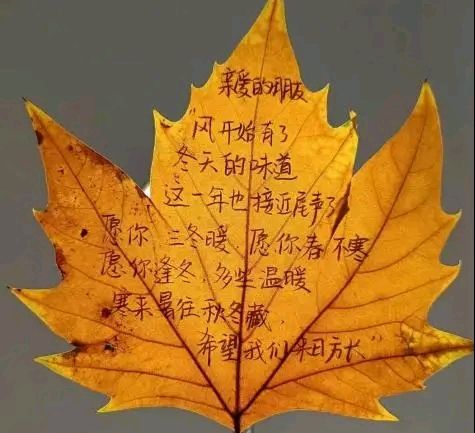 亲爱的朋友
“风开始有了
冬天的味道
这一年也接近尾声了
愿你三冬暖、愿你春不寒
愿你逢冬多些温暖
寒来暑往秋冬藏，
希望我们来日方长”